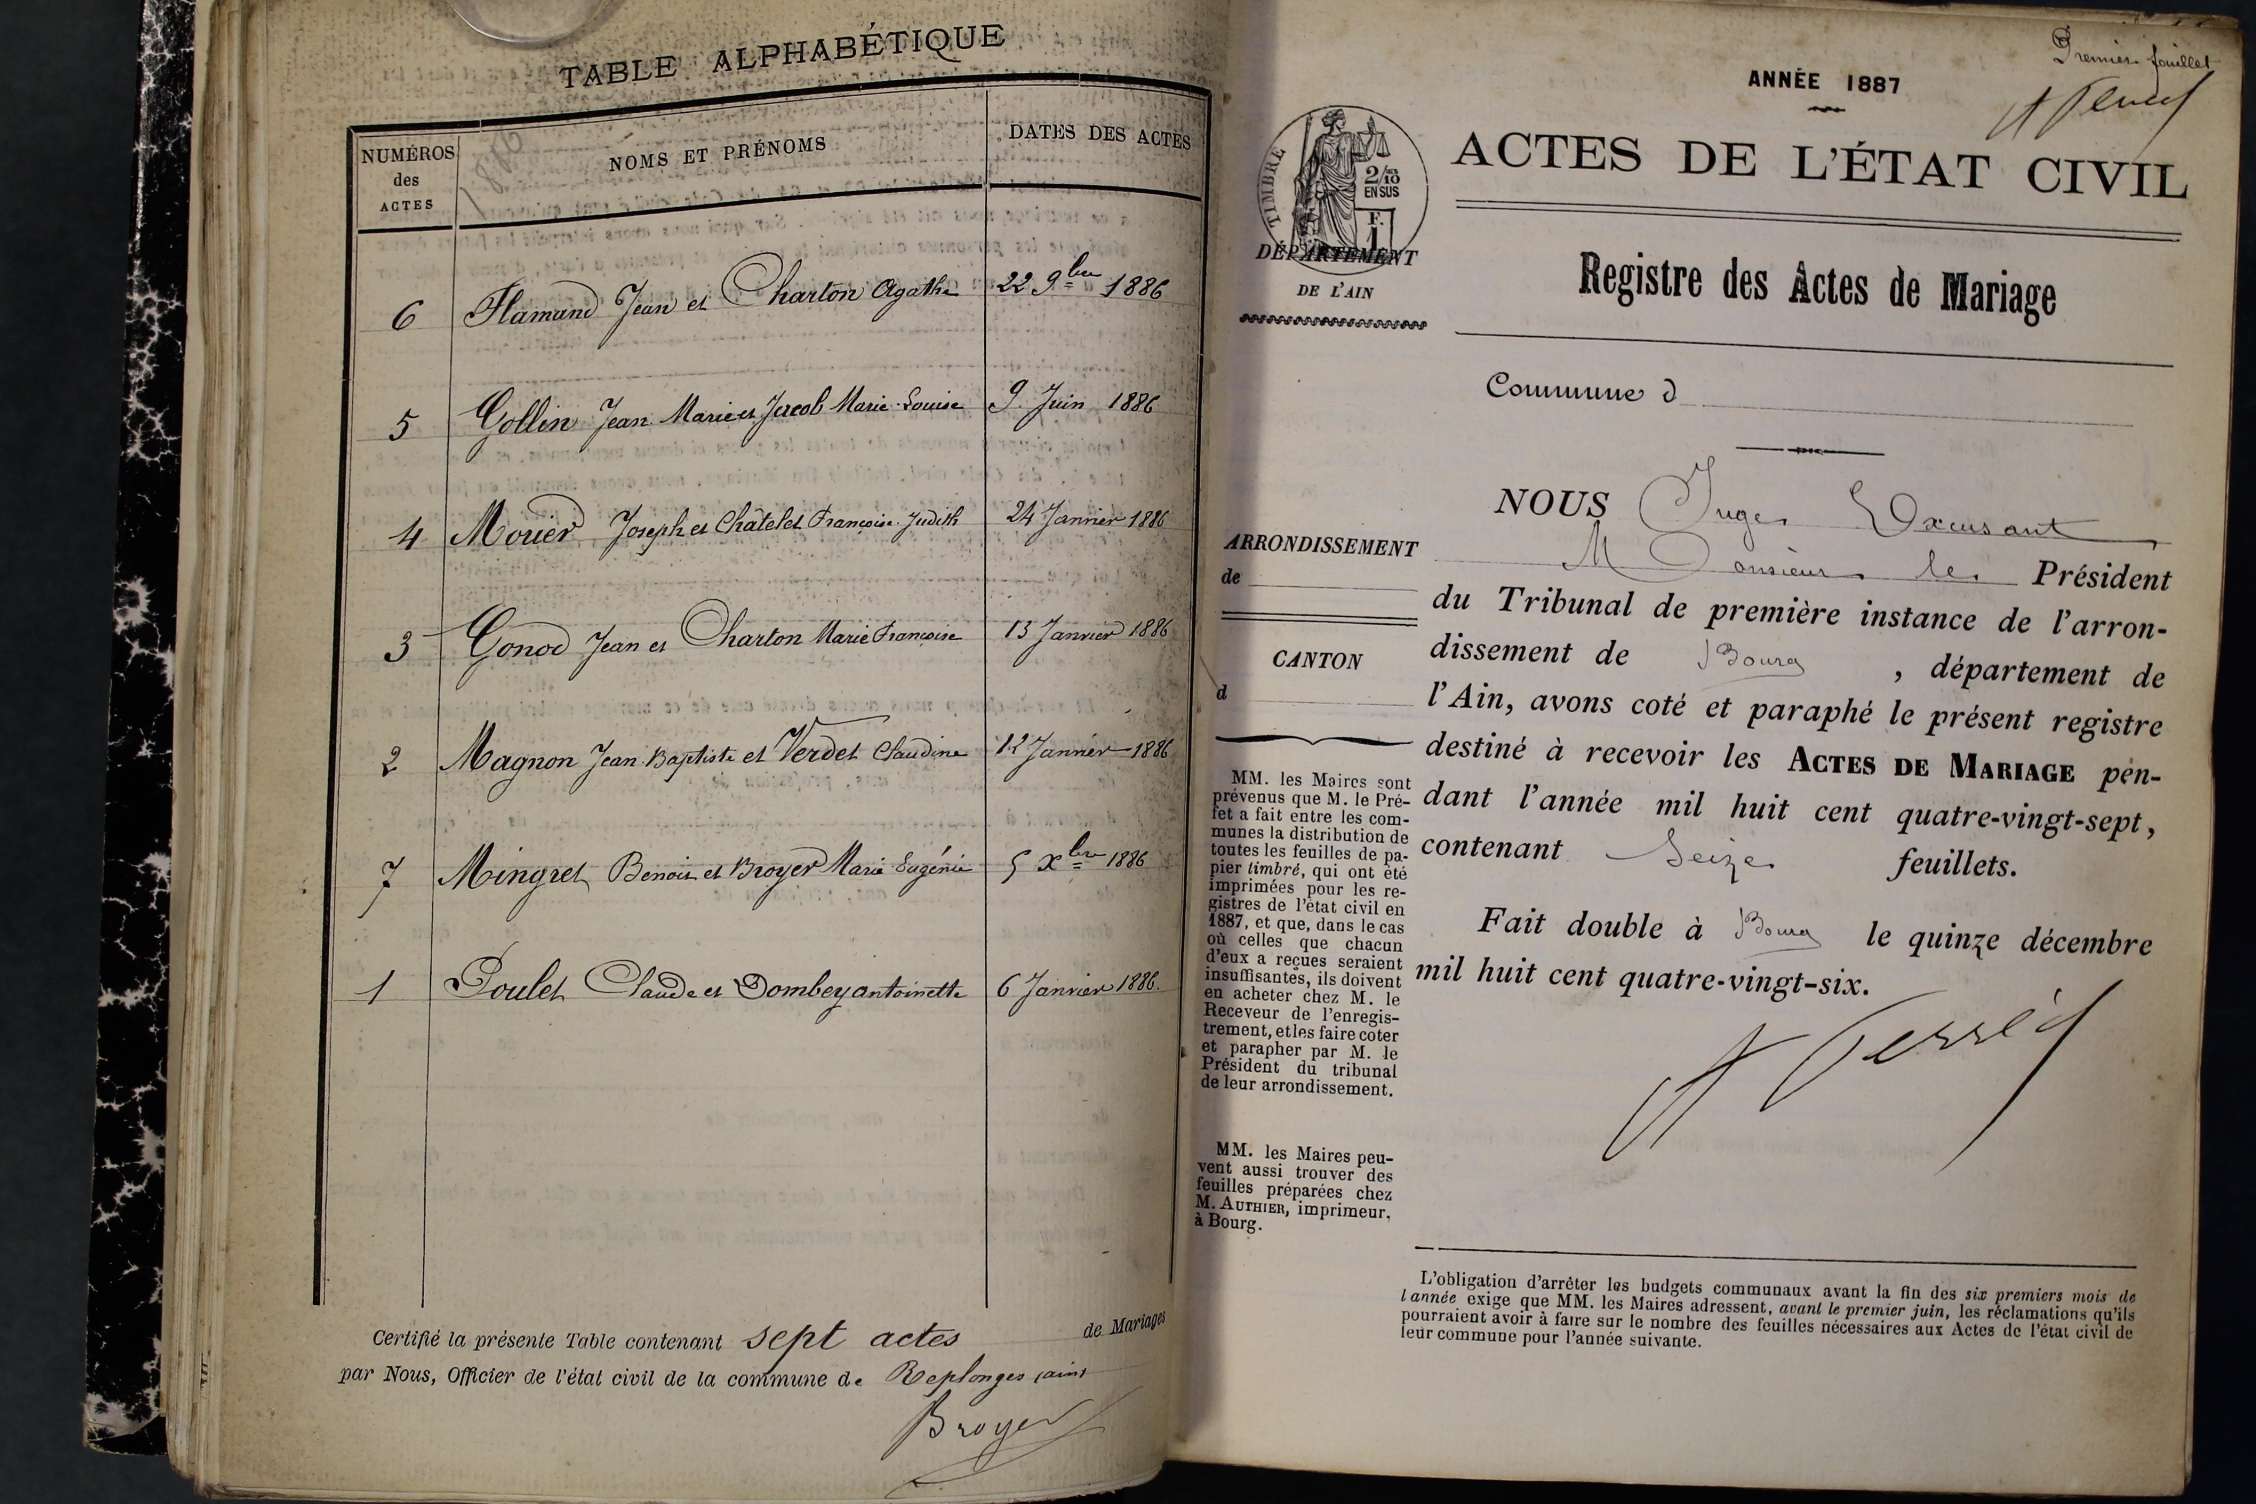 TABLE ALPHABÉTIQUE
NUMÉROS des ACTES
NOMS ET PRÉNOMS
DATES DES ACTES
1886
6 Flamand Jean et Charton Agathe 22 9bre 1886
5 Gollin Jean Marie et Jacob Marie Louise 9 Juin 1886
4 Morier Joseph et Châtelet Françoise Judith 24 Janvier 1886
3 Gonod Jean et Charton Marie Françoise 13 Janvier 1886
2 Magnon Jean Baptiste et Verdet Claudine 12 Janvier 1886
7 Mingret Benoit et Broyer Marie Eugénie 5 Xbre 1886
1 Poulet Claude et Dombey antoinette 6 Janvier 1886
Certifié la présente Table contenant sept actes de Mariages
par Nous, Officier de l'état civil de la commune de Replonges (ain)
Broyer
Premier feuillet
ANNÉE 1887
ACTES DE L'ÉTAT CIVIL
TIMBRE
2/10 EN SUS
F. 1
DÉPARTEMENT
DE L'AIN
Registre des Actes de Mariage
Commune d
ARRONDISSEMENT
de
CANTON
d
MM. les Maires sont
prévenus que M. le Pré-
fet a fait entre les com-
munes la distribution de
toutes les feuilles de pa-
pier timbré, qui ont été
imprimées pour les re-
gistres de l'état civil en
1887, et que, dans le cas
où celles que chacun
d'eux a reçues seraient
insuffisantes, ils doivent
en acheter chez M. le
Receveur de l'enregis-
trement, et les faire coter
et parapher par M. le
Président du tribunal
de leur arrondissement.
MM. les Maires peu-
vent aussi trouver des
feuilles préparées chez
M. AUTHIER, imprimeur,
à Bourg.
NOUS Juge Excusant
Monsieur le Président
du Tribunal de première instance de l'arron-
dissement de Bourg, département de
l'Ain, avons coté et paraphé le présent registre
destiné à recevoir les ACTES DE MARIAGE pen-
dant l'année mil huit cent quatre-vingt-sept,
contenant Seize feuillets.
Fait double à Bourg le quinze décembre
mil huit cent quatre-vingt-six.
L'obligation d'arrêter les budgets communaux avant la fin des six premiers mois de
l'année exige que MM. les Maires adressent, avant le premier juin, les réclamations qu'ils
pourraient avoir à faire sur le nombre des feuilles nécessaires aux Actes de l'état civil de
leur commune pour l'année suivante.